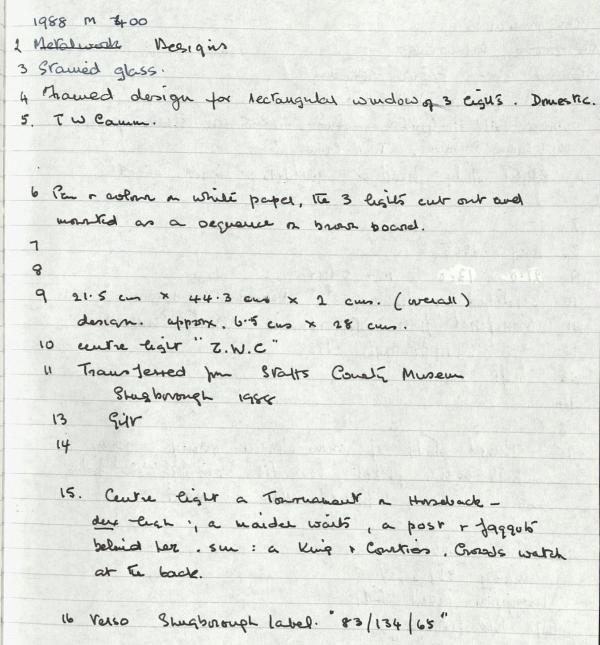 1988 M 400
2 Metalwork Designs
3 Stained glass.
4 Framed design for rectangular window of 3 lights. Domestic.
5. T W Camm.
6 Pen + colour on white paper, the 3 lights cut out and
mounted as a sequence on brown board.
7
8
9 21.5 cms × 44.3 cms × 2 cms. (overall)
design. approx. 6.5 cms × 28 cms.
10 centre light "T.W.C"
11 Transferred from Staffs County Museum
Shugborough 1988
13 Gift
14
15. Centre light a Tournament on Horseback –
dex light :, a maiden waits, a post + faggots
behind her. sin : a King + Courtiers. Crowds watch
at the back.
16 Verso Shugborough label. "83/134/65"